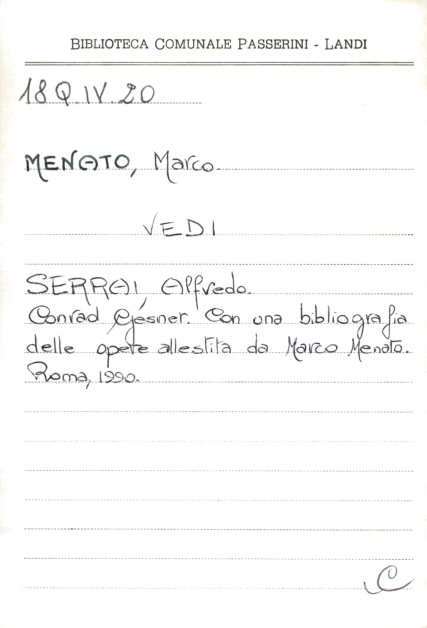 BIBLIOTECA COMUNALE PASSERINI - LANDI
18 Q.IV.20
MENATO, Marco.
VEDI
SERRAI, Alfredo.
Conrad Gesner. Con una bibliografia
delle opere allestita da Marco Menato.
Roma, 1990.
C